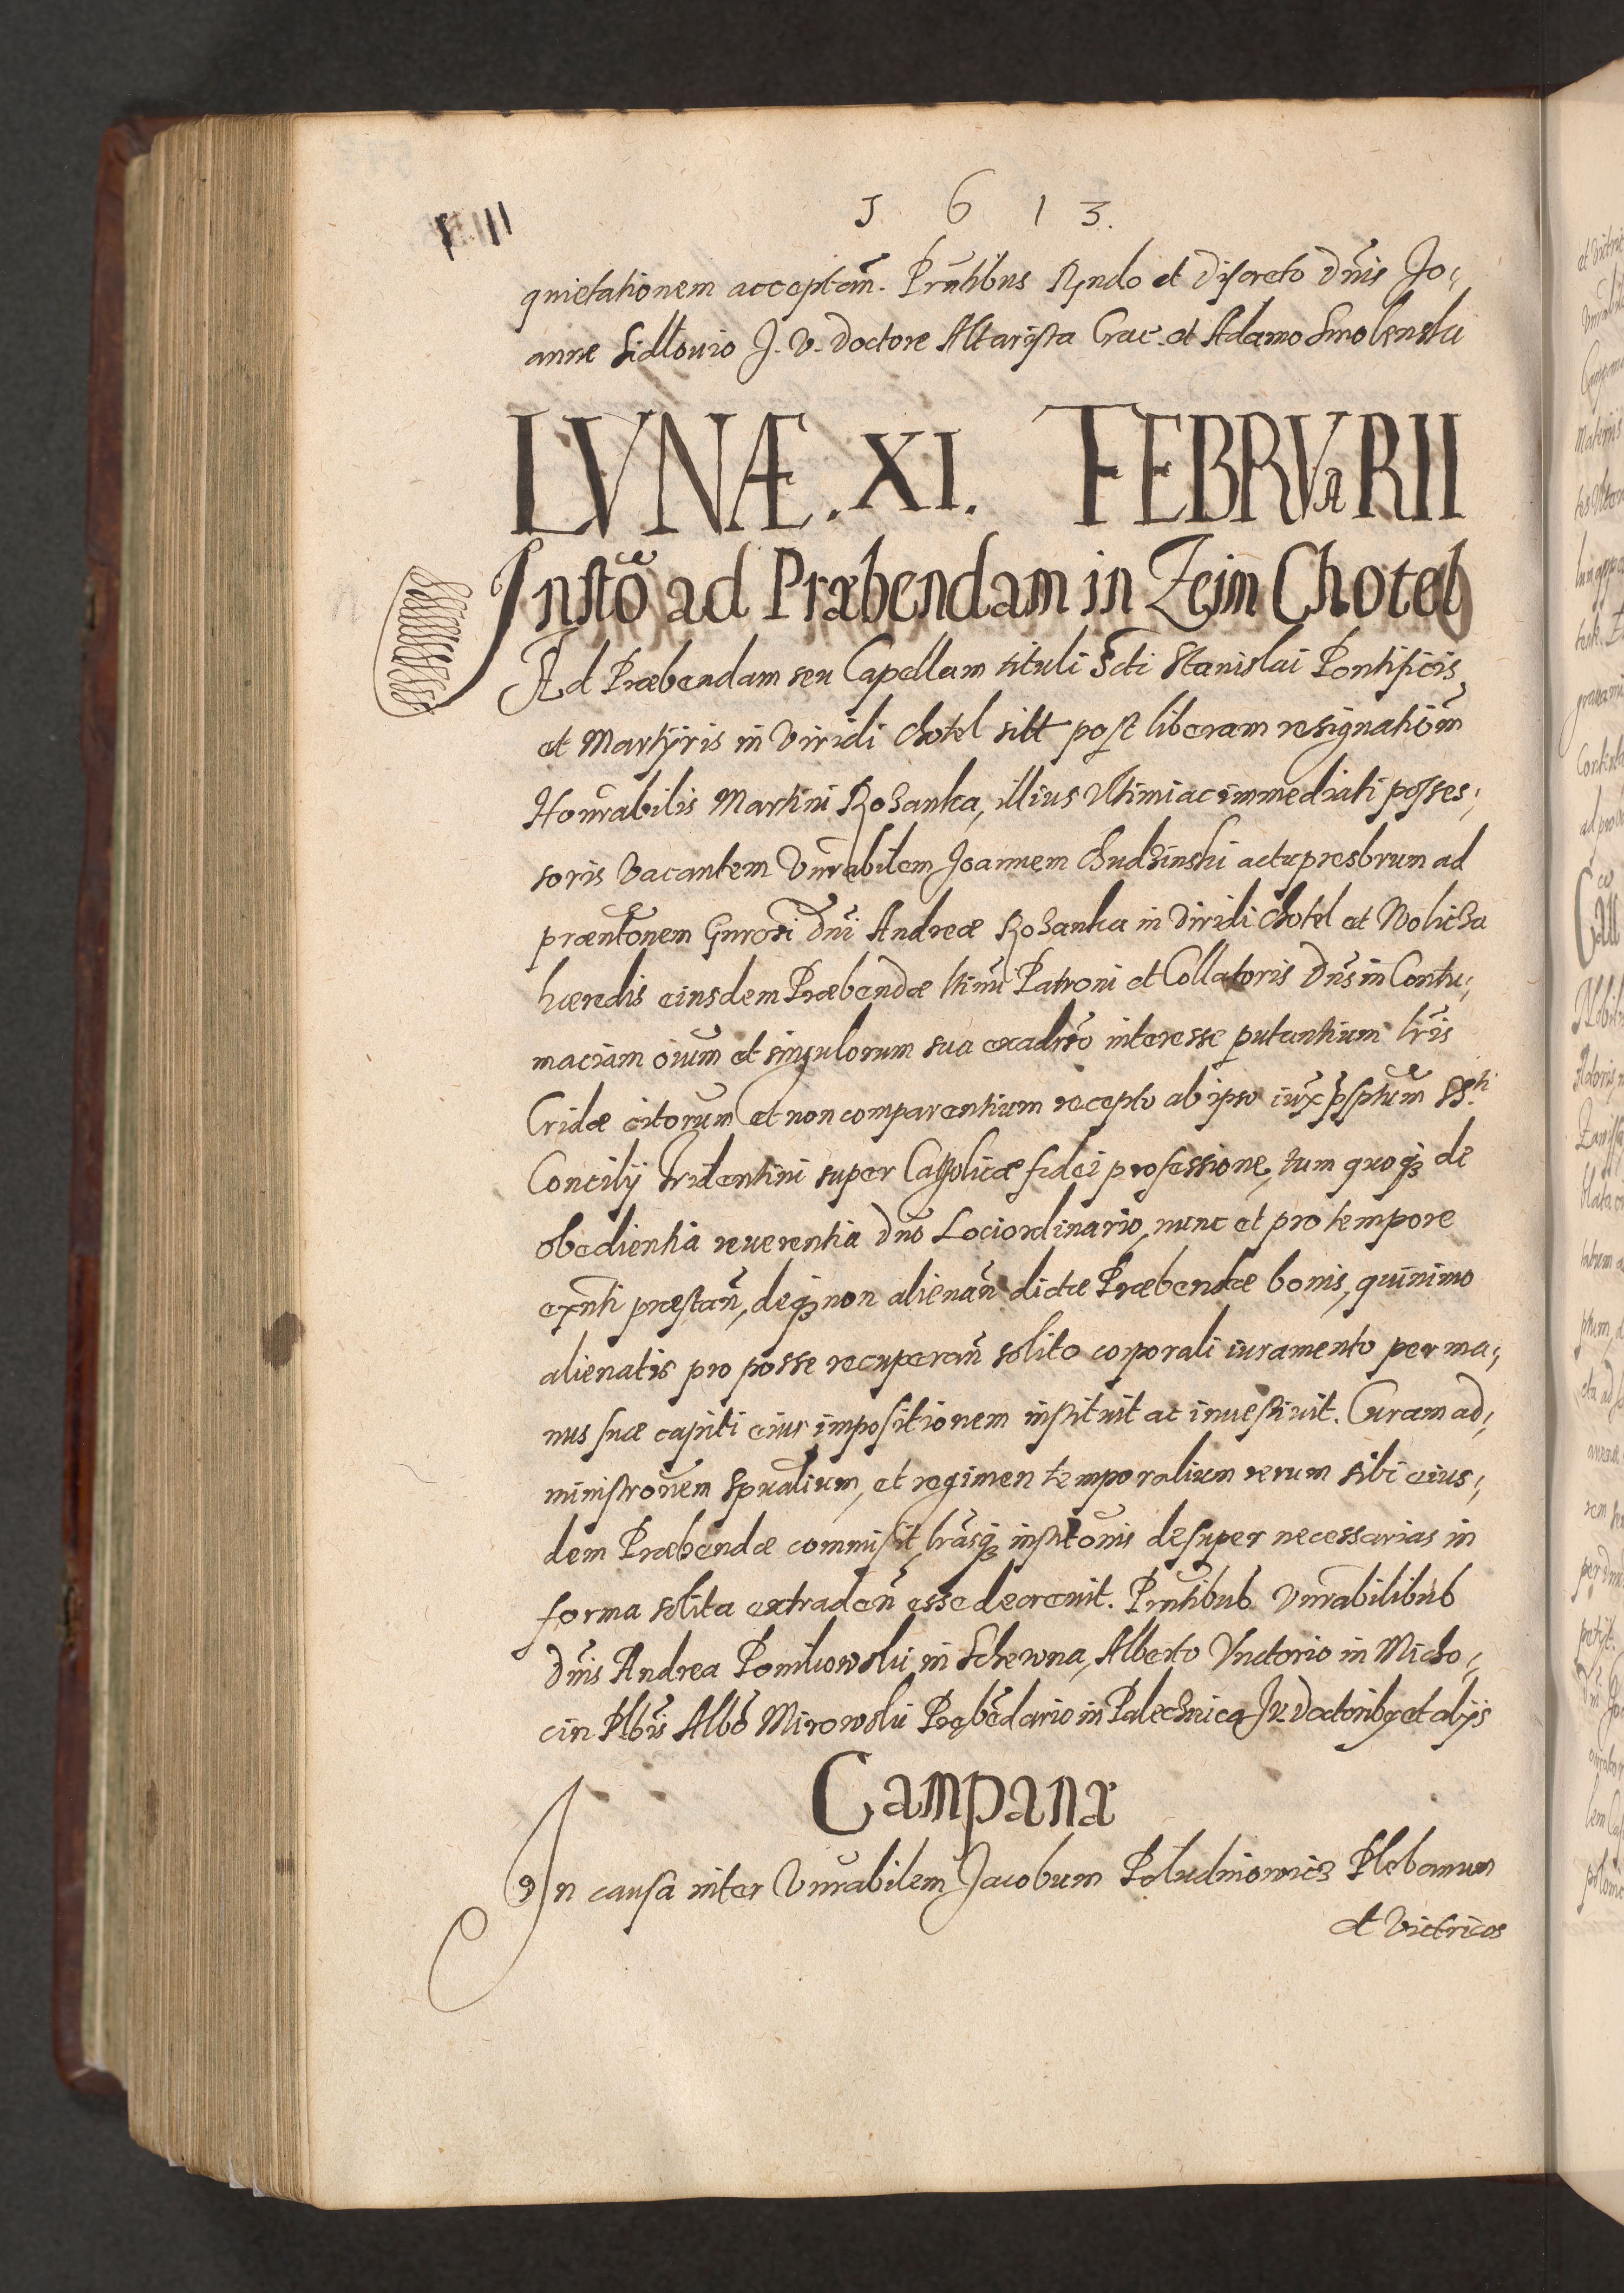 1 6 1 3.
quietationem acceptam̃. Pr̃ntibus Rỹndo et discreto dñis Jo,
anne Sidlovio J. V. doctore Altarista Crac. et Adamo Smolenski
LVNÆ. XI. FEBRVARII
Instõ ad Præbendam in Zeim Chotel
Ad Præbendam seu Capellam tituli Scti Stanislai Pontificis
et Martÿris in Viridi Chotel sitt post liberam resignatiõm
Honrabilis Martini Rozanka, illius Vltimi ac immediati posses,
soris Vacantem Vnrabilem Joannem Chudzinski actu presbrum ad
præntõnem Gnrosi Dñi Andreæ Rozanka in Viridi Chotel et Wolicza
hæredis eiusdem Præbendæ ltimi Patroni et Collatoris Dñs in Contu,
maciam oium et singulorum sua exadrso interesse putantium lris
Cridæ citorum et non comparentium recepto ab ipso iux p̃sptum SS.ti
Concilij Tridentini super Catholicæ fidei professione, tum quoqȝ de
obedientia reuerentia dño Lociordinario, nunc et pro tempore
exñti præstañ, deqȝ non alienañ dictæ Præbendæ bonis, quinimo
alienatis pro posse recuperañ solito corporali iuramento per ma,
nus suæ capiti eius impositionem instituit ac inuestiuit. Curam ad,
ministrõnem spualium, et regimen temporalium rerum sibi eius,
dem Præbendæ commisit, lrasqȝ institõnis desuper necessarias in
forma solita extradeñ esse decreuit. Prñtibus Vnrabilibus
dñis Andrea Pomikowski, in Schewna, Alberto Vnctorio in Micho,
cin Plbis Albo Mirowski Præbẽdario in Palechnica Jv. doctoriby et alijs
Campanæ
In causa inter Vnrabilem Jacobum Poludniowicz Plebanum
et Victricos